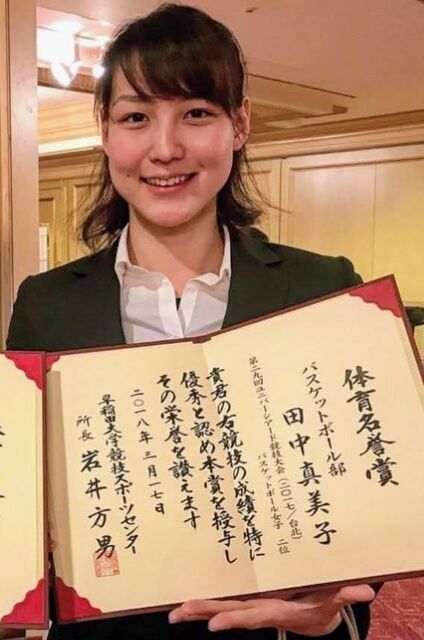 体育名誉賞
バスケットボール部
田中真美子
第二九回ユニバーシアード競技大会(二〇一七/台北)
バスケットボール女子 二位
貴君の右競技の成績を特に
優秀と認め本賞を授与し
その栄誉を讃えます
二〇一八年三月一七日
早稲田大学競技スポーツセンター
所長 岩井方男